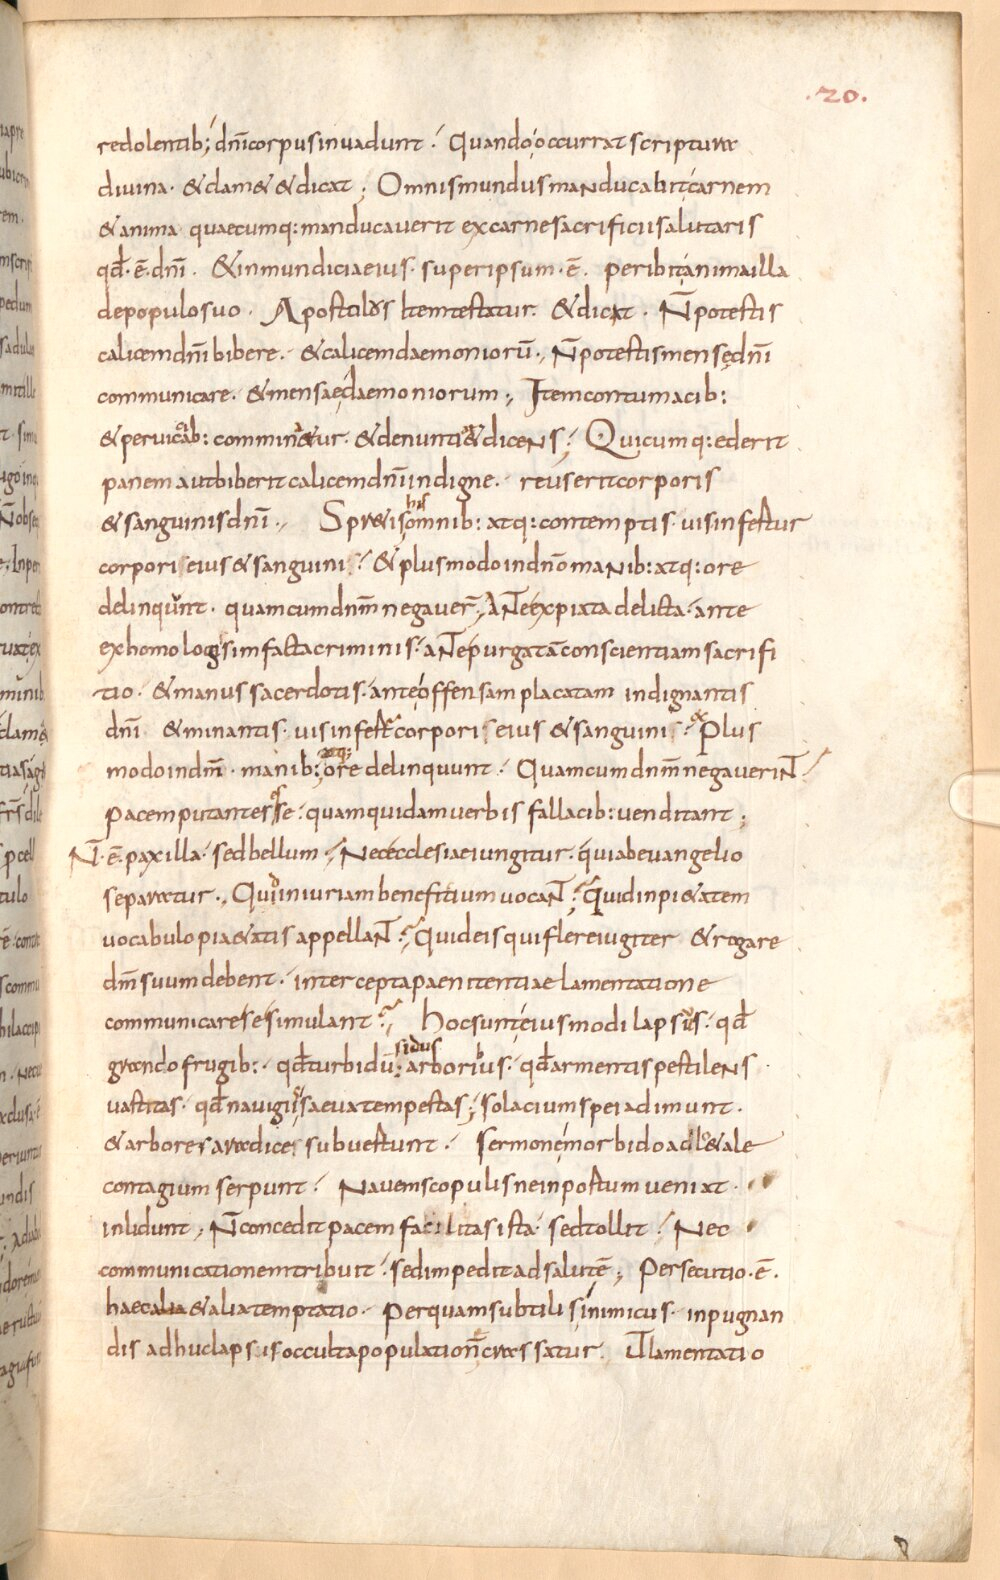 .20.
redolentib; dn̄i corpus inuadunt. Quando occurrat scriptura
diuina. & clam& & dicat; Omnis mundus manducabit carnem
& anima quaecumq: manducauerit ex carne sacrificii salutaris
qđ. ē. dn̄i. & inmundicia eius. super ipsum. ē. peribit anima illa
de populo suo. Apostolus item testatur. & dicat. N̄ potestis
calicem dn̄i bibere. & calicem daemoniorū., N̄ potestis mensę dn̄i
communicare. & mensae daemoniorum., Item contumacib:
& peruicacib: comminatur. & denuntiat & dicens; Quicumq: ederit
panem aut biberit calicem dn̄i indigne. reus erit corporis
& sanguinis dn̄i., Spr&is his omnib: atq: contemptis uis infertur
corpori eius & sanguini. & plus modo in dn̄o manib: atq: ore
delinqunt. quam cum dnm̄ negauer̄. ANte expiata delicta. ante
exhomologesim facta criminis. aNte purgatā conscientiam sacrifi
tio. & manus sacerdotis. ante offensam placatam indignantis
dn̄i & minantis. uis infertur corpori eius & sanguini. Plus
modo in dn̄m. manib; atq: ore delinquunt. Quam cum dnm̄ negaueriN̄.
pacem putantes esse. quam quidam uerbis fallacib: uenditant;
N̄. ē. pax illa. sed bellum., Nec ecclesiae iungitur. qui ab euangelio
separatur., Quid iniuriam benefitium uocaN̄. Quid inpi&atem
uocabulo piaetatis appellaN̄. Quid eis qui flere iugiter & rogare
dn̄m suum debent. intercepta paenitentiae lamentatione
communicare se simulant. Hoc sunt eiusmodi lapsis. qđ
grando frugib:. qđ turbidū; sidus arboribus. qđ armentis pestilens
uastitas. qđ nauigiis saeua tempestas; solacium spei adimunt.
& arbores a radice subuertunt. sermone morbido ad l&ale
contagium serpunt. Nauem scopulis ne in portum ueniat.
inlidunt, N̄ concedit pacem facilitas ista. sed tollit. Nec
communicationem tribuit. sed impedit ad salutē; Persecutio. ē.
haec alia & alia temptatio. Per quam subtilis inimicus. inpugnan
dis adhuc lapsis occulta populatione crassatur. Ut lamentatio